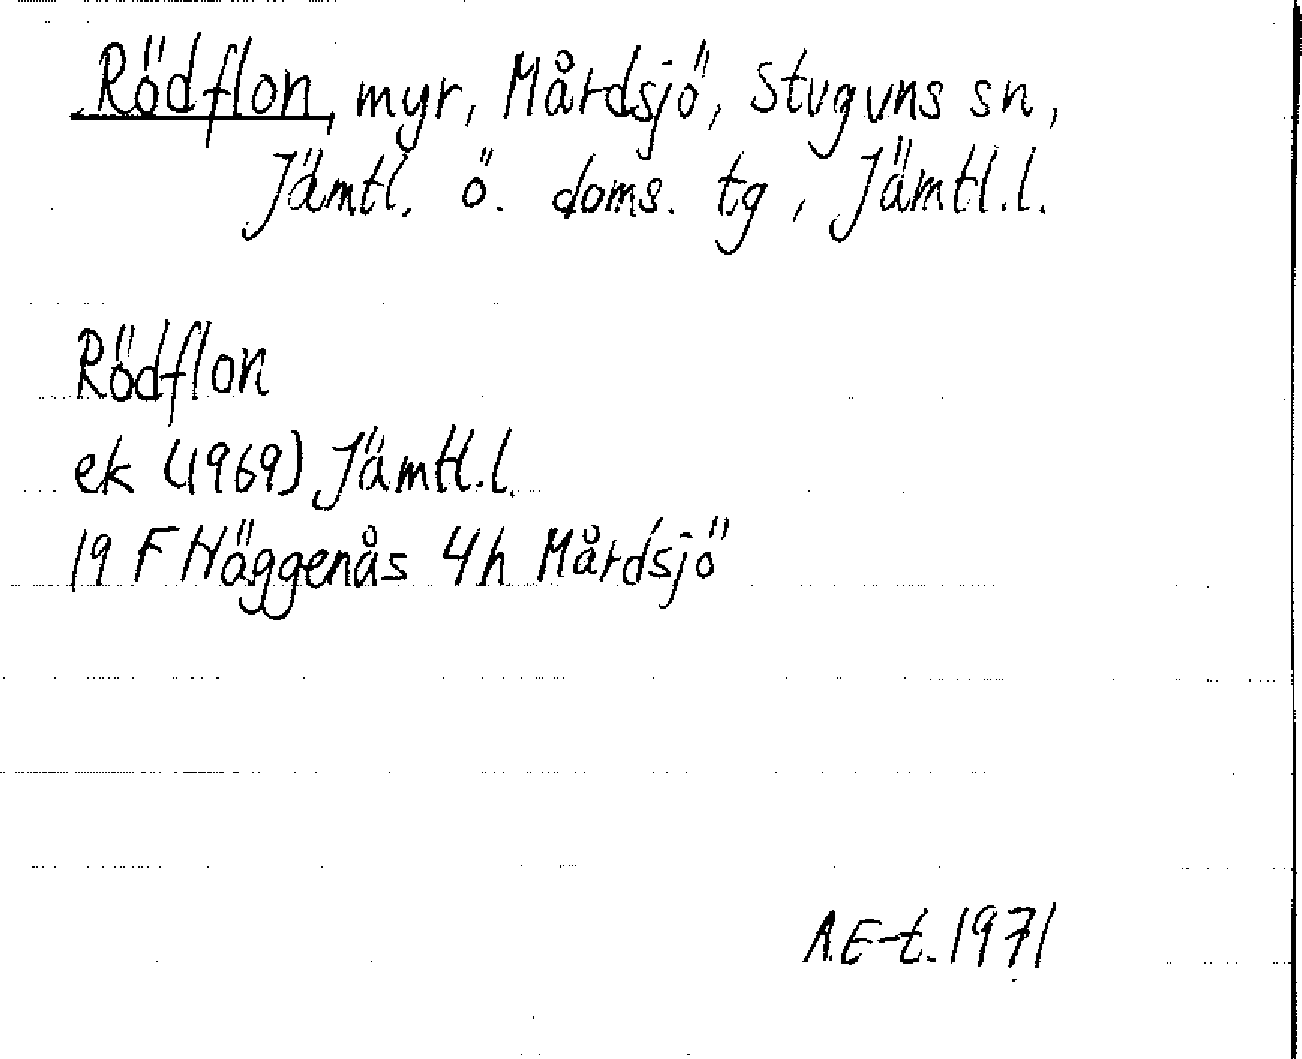 Rödflon, myr, Mårdsjö, Stuguns sn,
Jämtl. ö. doms. tg, Jämtl.l.
Rödflon
ek (1969) Jämtl.l.
19 F Häggenås 4h Mårdsjö
A.E-t. 1971